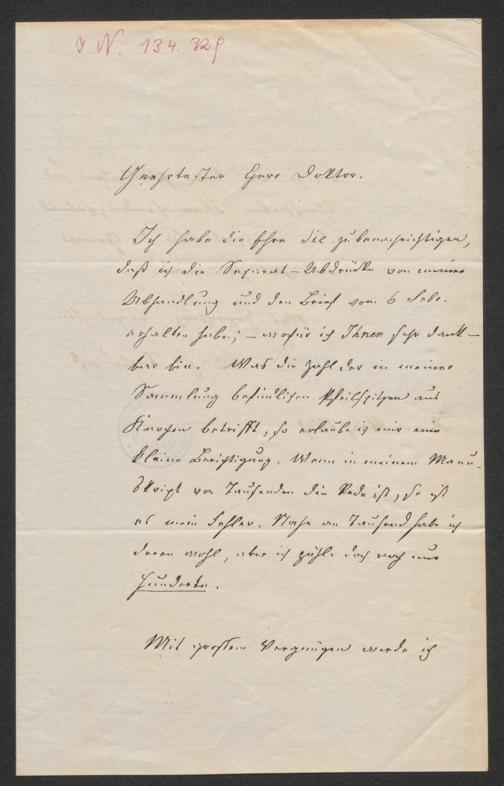 I. N. 134.329
Geehrtester Herr Doktor.
Ich habe die Ehre Sie zu benachrichtigen,
daß ich die Separat-Abdrücke von meiner
Abhandlung und den Brief vom 6 Febr.
erhalten habe; – wofür ich Ihnen sehr dank-
bar bin. Was die Zahl der in meiner
Sammlung befindlichen Pfeilspitzen aus
Knochen betrifft, so erlaube ich mir eine
kleine Berichtigung. Wenn in meinem Manu-
skript von Tausenden die Rede ist, so ist
es mein Fehler. Nahe an Tausend habe ich
deren wohl, aber ich zähle doch noch nur
Hunderte.
Mit grossem Vergnügen werde ich